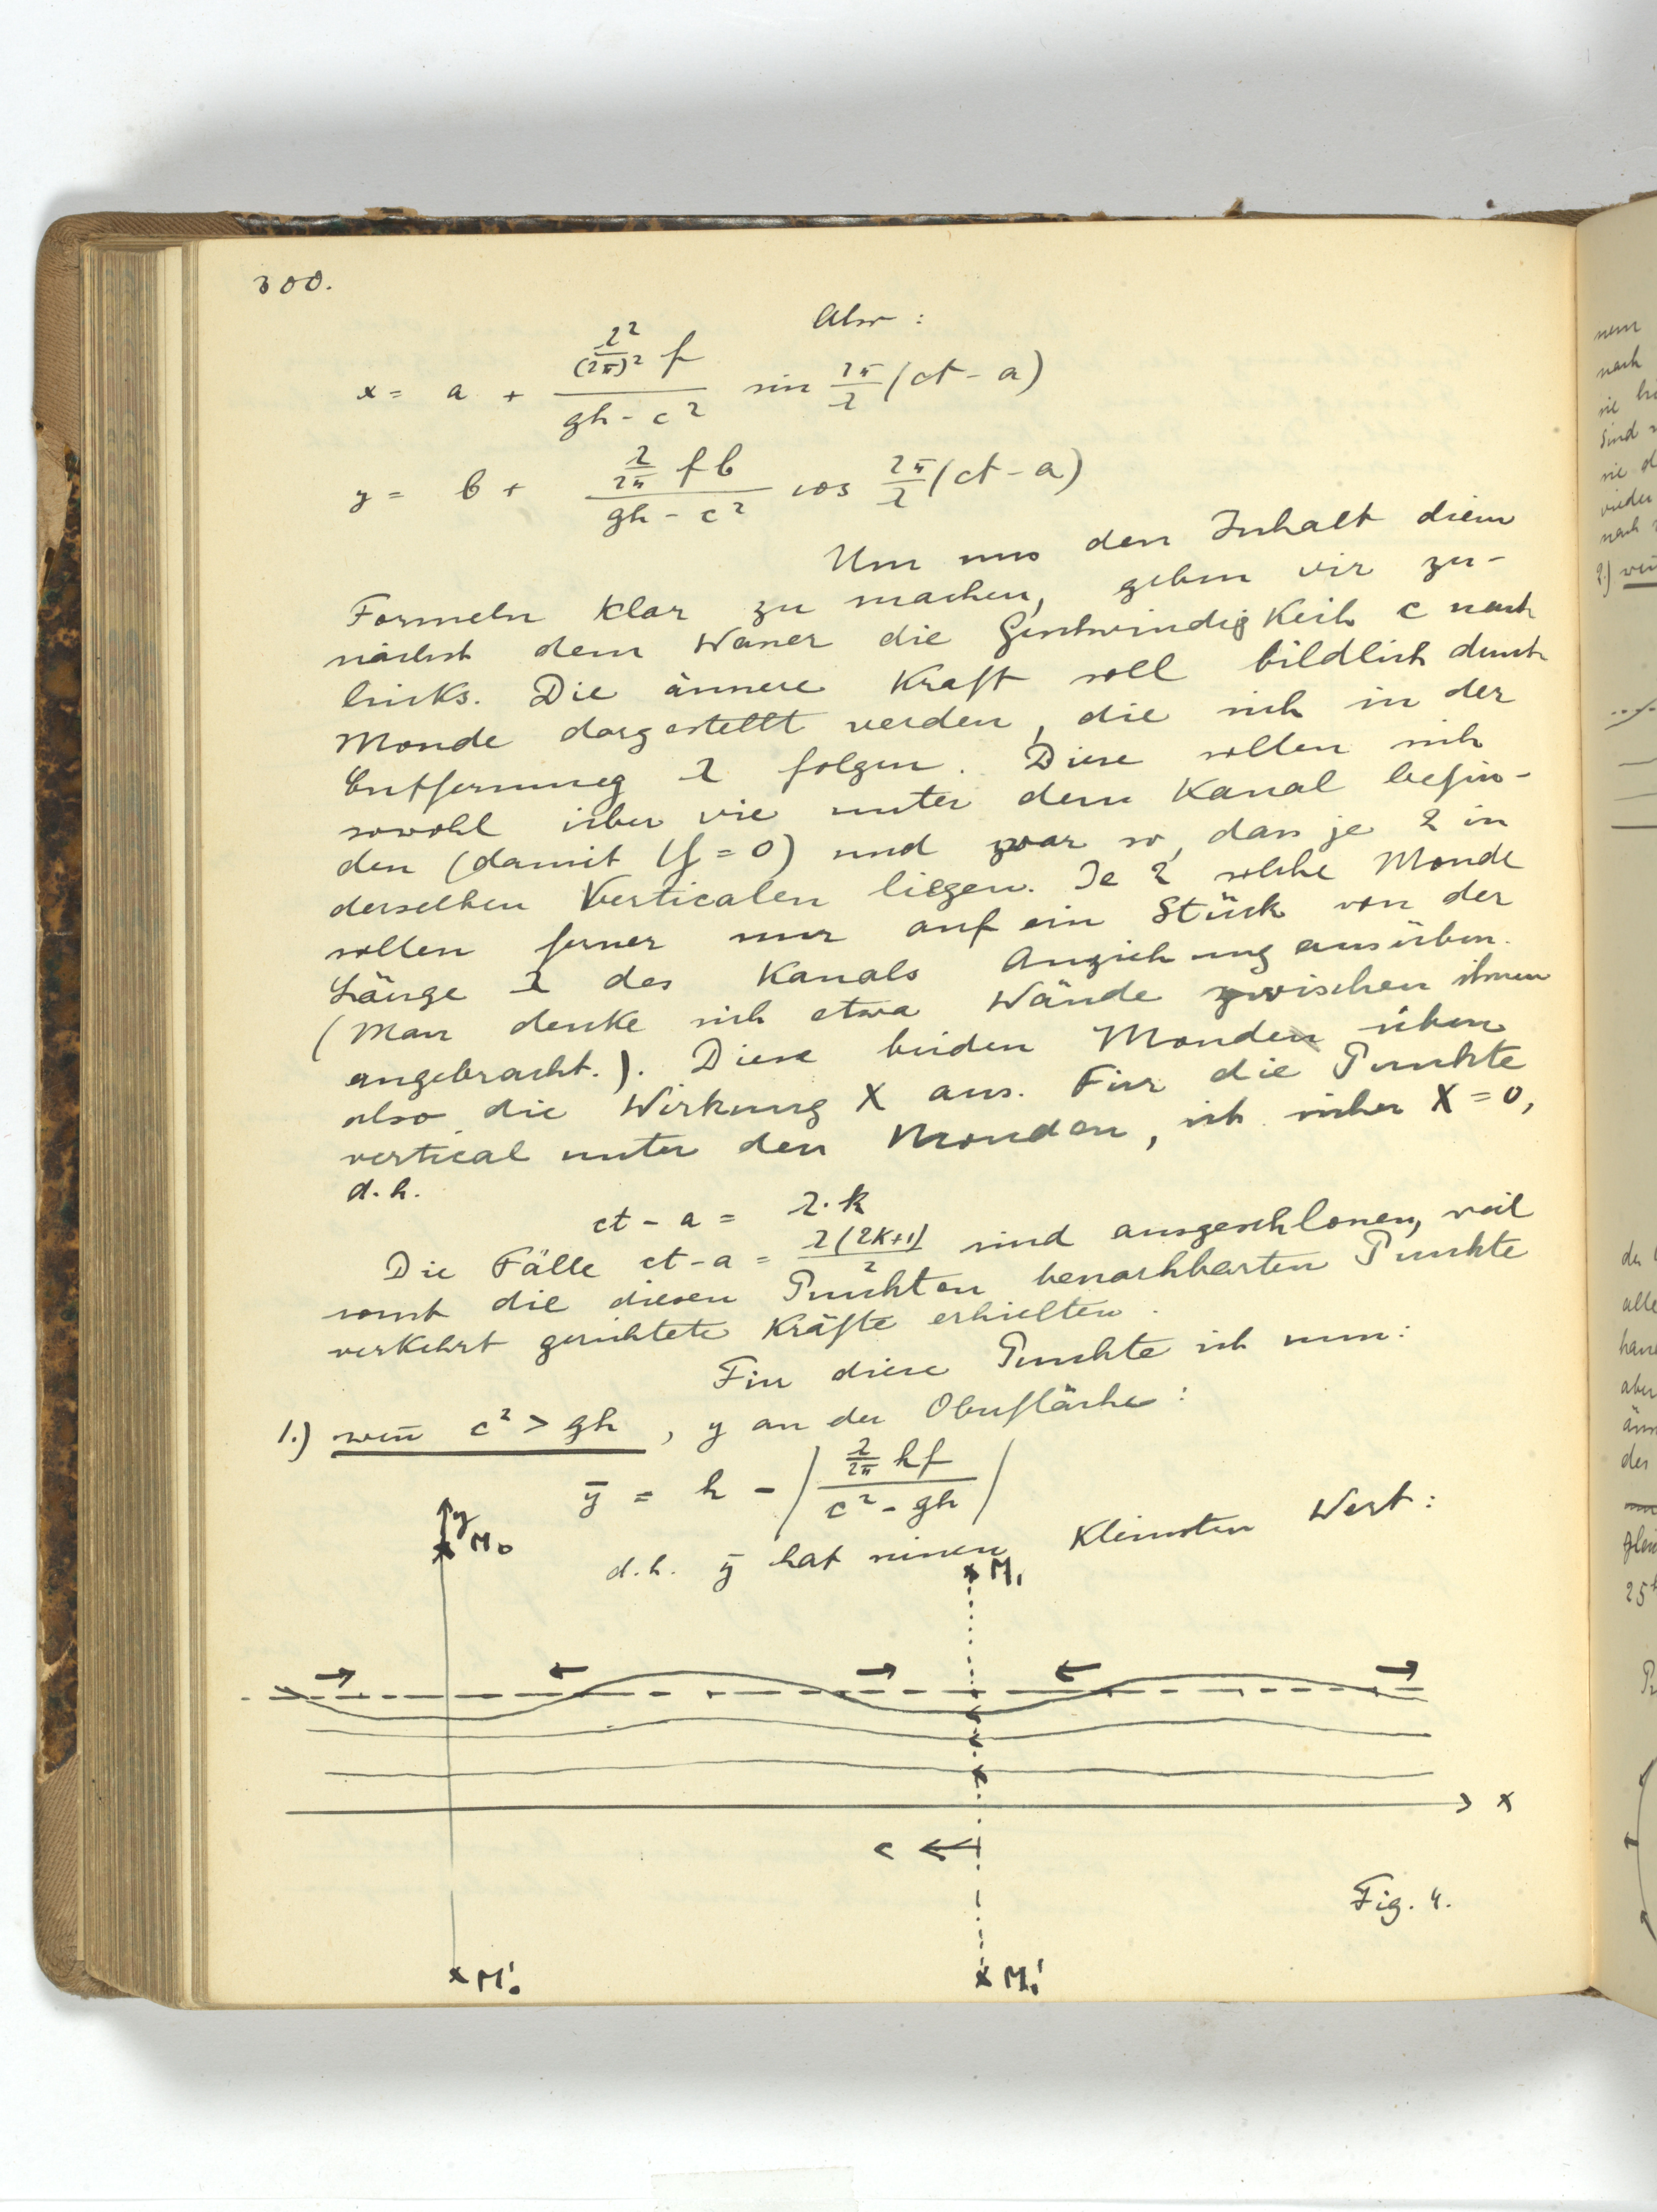 300.
Also :
x = a + \frac{\frac{λ^2}{(2π)^2} f}{gh - c^2} sin \frac{2π}{λ} (ct - a)
y = b + \frac{\frac{λ}{2π} f b}{gh - c^2} cos \frac{2π}{λ} (ct - a)
Um uns den Inhalt dieser
Formeln klar zu machen, geben wir zu-
nächst dem Wasser die Geschwindigkeit c nach
links. Die äussere Kraft soll bildlich durch
Monde dargestellt werden, die sich in der
Entfernung λ folgen. Diese sollen sich
sowohl über wie unter dem Kanal befin-
den (damit Y = 0) und zwar so, dass je 2 in
derselben Verticalen liegen. Je 2 solche Monde
sollen ferner nur auf ein Stück von der
Länge λ des Kanals Anziehung ausüben.
(Man denke sich etwa Wände zwischen ihnen
angebracht.). Diese beiden Monde üben
also die Wirkung X aus. Für die Punkte
vertical unter den Monden, ist sicher X = 0,
d.h.
ct - a = λ · k
Die Fälle ct - a = \frac{λ(2k+1)}{2} sind ausgeschlossen, weil
sonst die diesen Punkten benachbarten Punkte
verkehrt gerichtete Kräfte erhielten.
Für diese Punkte ist nun:
1.) wen̄ c² > gh , y an der Oberfläche:
ȳ = h - | \frac{\frac{λ}{2π} hf}{c^2 - gh} |
d.h. ȳ hat seinen kleinsten Wert:
y
M₀
M₁
x
c
Fig. 4.
M₀'
M₁'